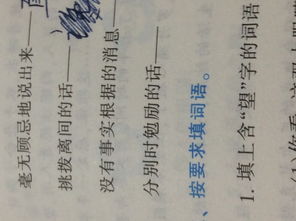 毫无顾忌地说出来——
挑拨离间的话——
没有事实根据的消息——
分别时勉励的话——
、按要求填词语。
1. 填上含“望”字的词语